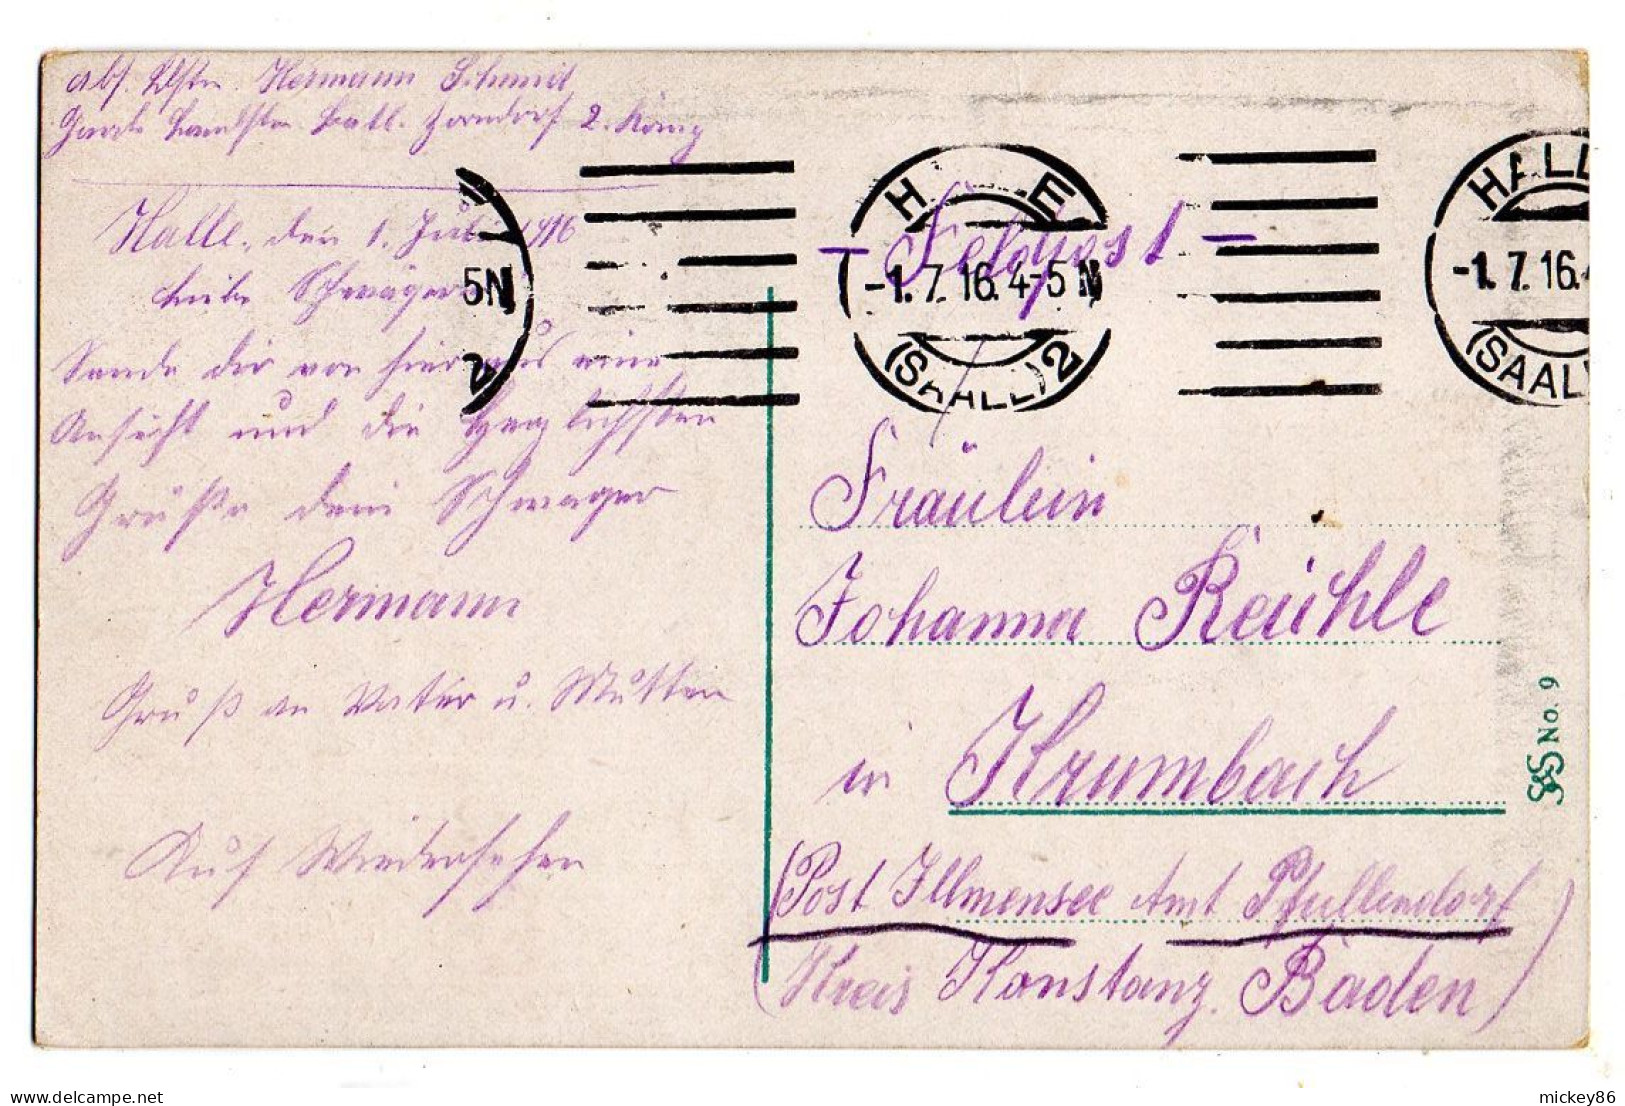 Abs. Ldstm. Hermann Schmid
Garde Landstm. Batl. Zorndorf 2. Komp
Halle, den 1. Juli 1916
Liebe Schwägerin
Sende dir von hier aus eine
Ansicht und die Herzlichsten
Grüße dein Schwager
Hermann
Gruß an Vater u. Mutter
Auf Wiedersehen
5N
2
HALLE
-1.7.16.4-5N
(SAALE) 2
HALL
-1.7.16.
(SAAL
- Feldpost -
Fräulein
Johanna Reichle
in Krumbach
(Post Illmensee Amt Pfullendorf
(Kreis Konstanz. Baden)
S&S No. 9
mickey86